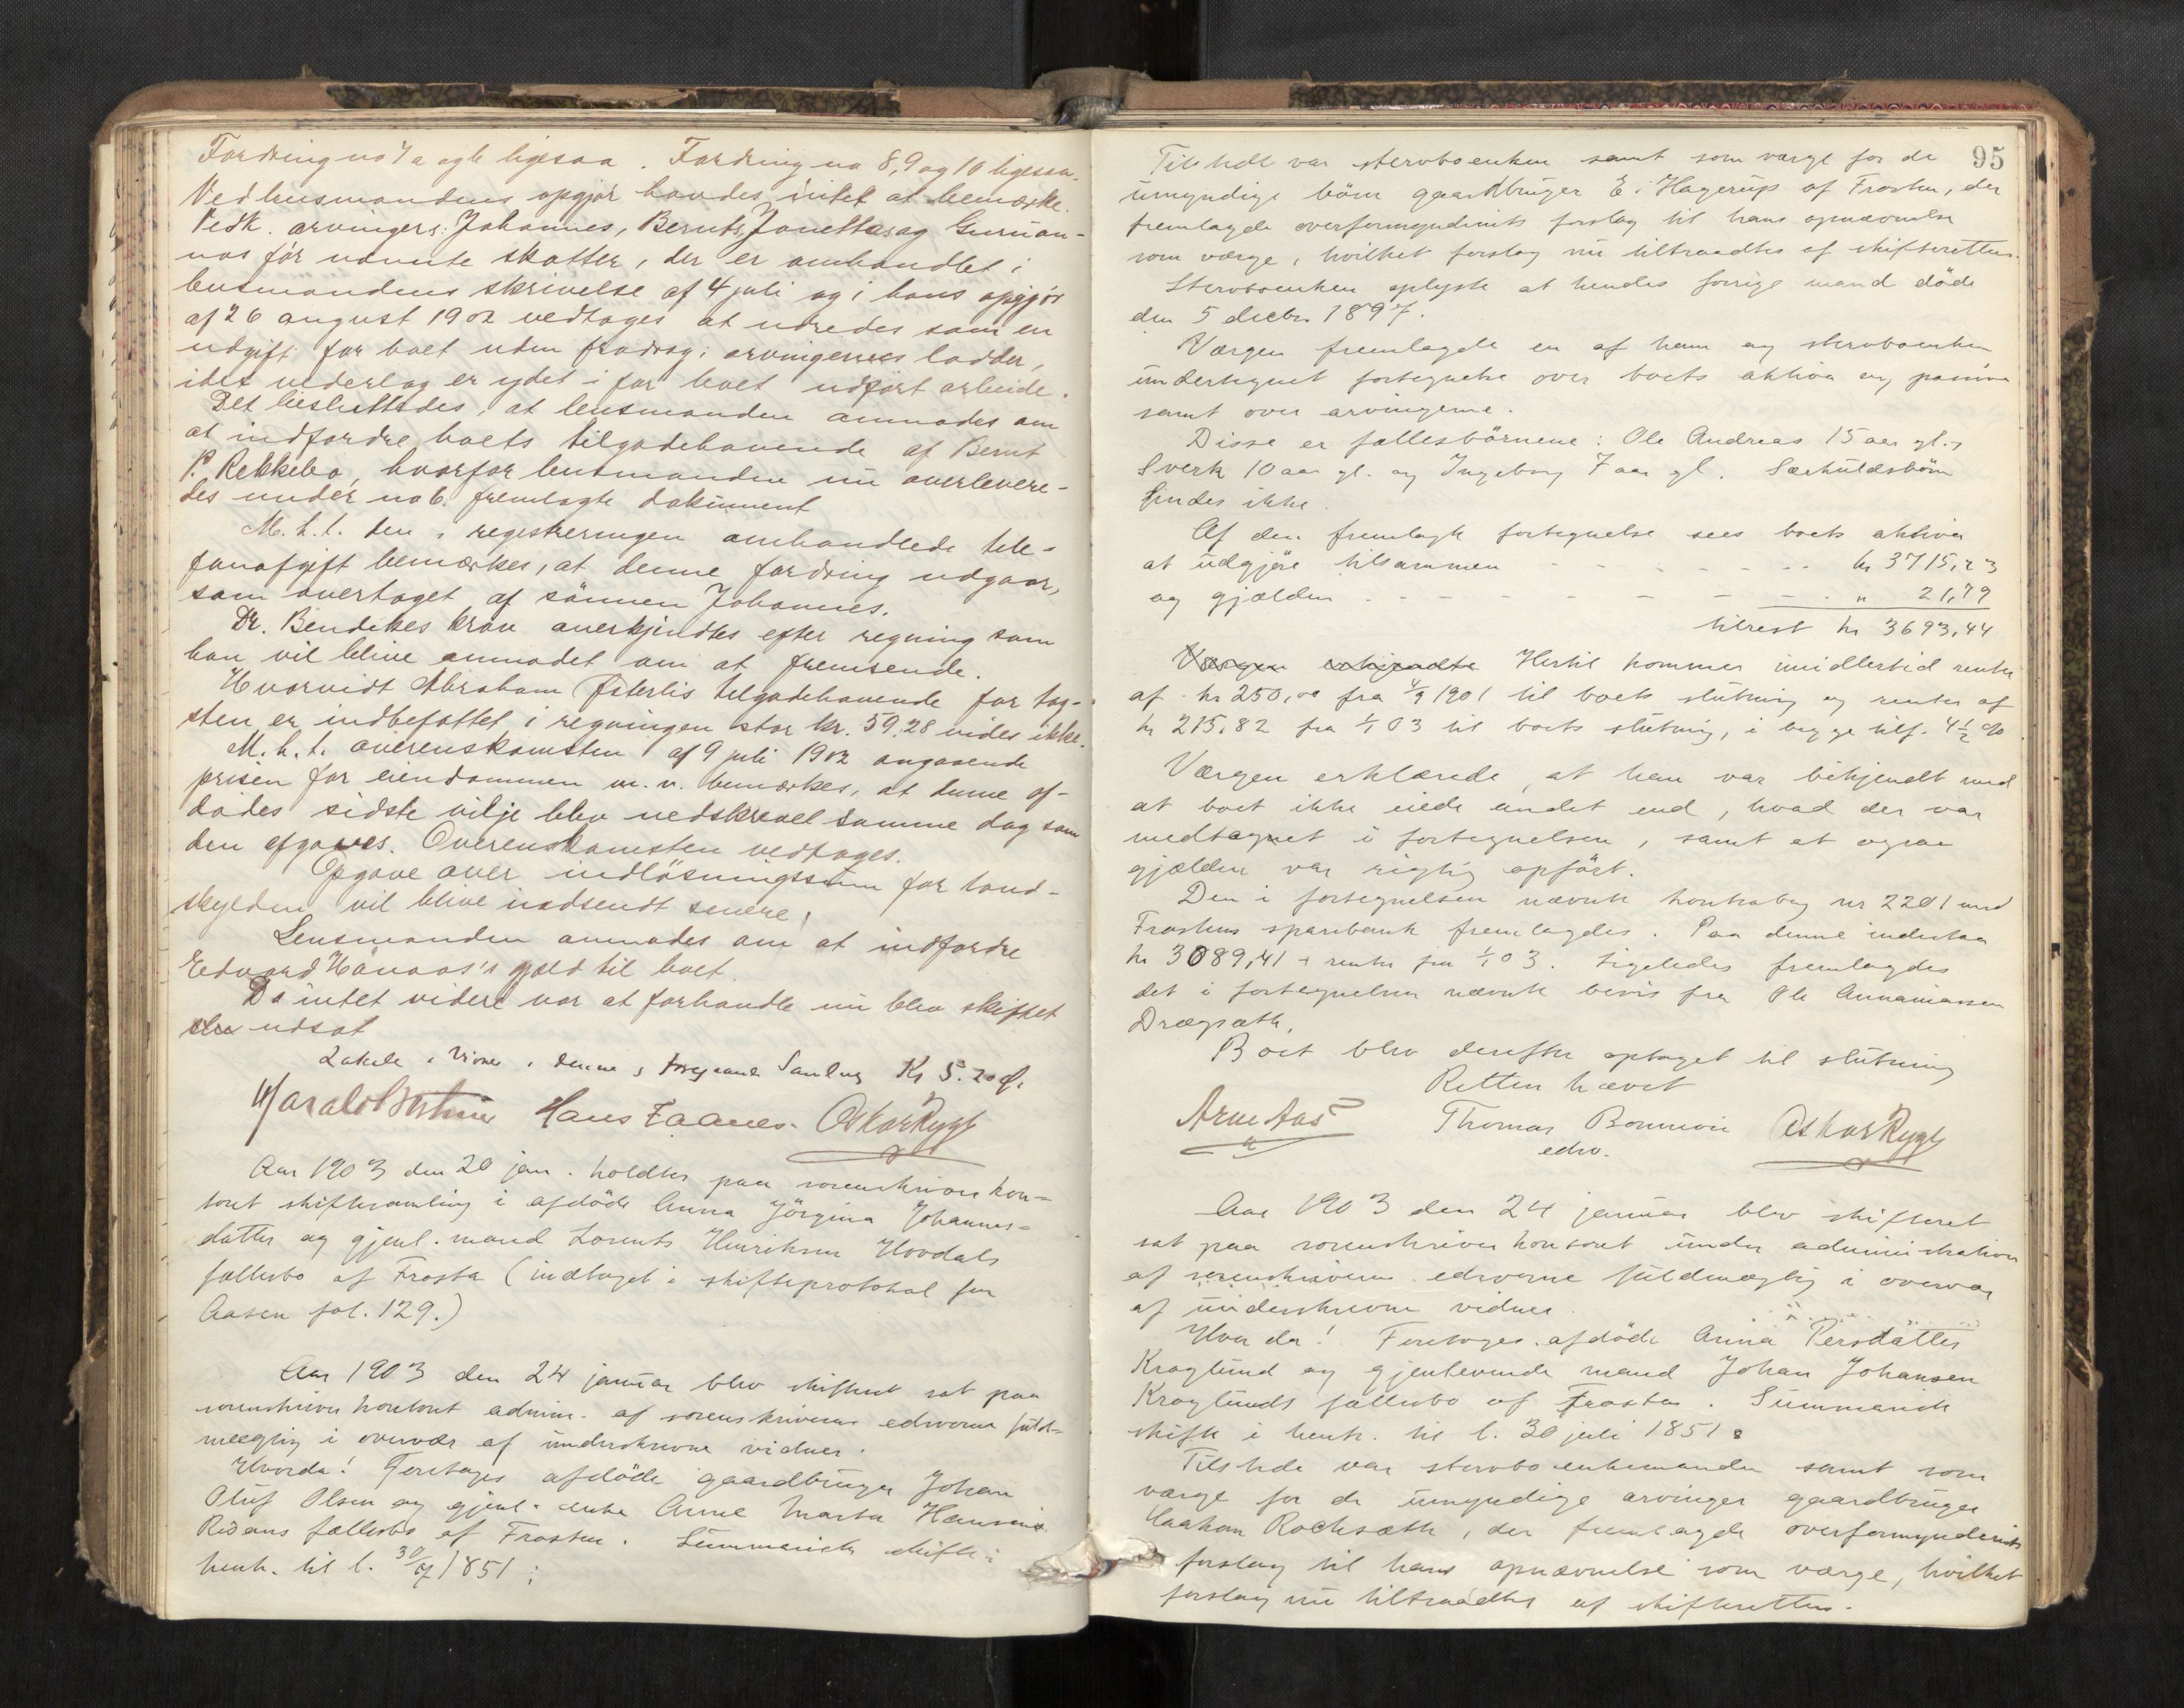 Fordring no 7 a og b ligesaa. Fordring no 8, 9 og 10 ligesaa.
Ved lensmandens opgjør havdes intet at bemærke.
Vedk. arvingers: Johannes, Bernts, Jonettas og Gurúan-
nas før nævnte skatter, der er omhandlet i
lensmandens skrivelse af 4 juli og i hans opgjør
af 26 august 1902 vedtages at udredes som en
udgift for boet uden fradrag i arvingernes lodder,
idet vederlag er ydet i for boet udført arbeide.
Det besluttedes, at lensmanden anmodes om
at indfordre boets tilgodehavende af Bernt
P. Rekkebo, hvorfor lensmanden nú overlevere-
des under no 6. fremlagte dokúment
M. h. t. den i registreringen omhandlede tele-
fonafgift bemærkes, at denne fordring udgaar,
som overtaget af sönnen Johannes.
Dr. Bendikes krav anerkjendtes efter regning som
han vil blive anmodet om at fremsende.
Hvorvidt Abraham Østerlis tilgodehavende for tag-
sten er indbefattet i regningen stor kr. 59.28 vides ikke.
M. h. t. overenskomsten af 9 juli 1902 angaaende
prisen for eiendommen m. v. bemærkes, at denne af-
dødes sidste vilje blev nedskrevet samme dag som
den afgaves. Overenskomsten vedtages.
Opgave over indlösningssum for land-
skylden vil blive indsendt senere.
Lensmanden anmodes om at indfordre
Edvard Hånaas's gjæld til boet.
Da intet videre var at forhandle nú blev skiftet
udsat
Lokale i denne Kr 5.20
Hans Faanes. Oskar Rygh
Aar 1903 den 20 jan. holdtes paa sorenskriverkon-
toret skiftesamling i afdöde Anna Jörgina Johannes-
datter og gjenl. mand Lorents Henriksen Hovdals
fællesbo af Frosta (indtaget i skifteprotokol for
Aasen fol. 129.)
Aar 1903 den 24 janúar blev skifteret sat paa
sorenskriverkontoret admin. af sorenskriverens edsvorne fúld-
mægtig i overvær af únderskrevne vidner.
Hvorda! Foretoges afdöde gaardbrúger Johan
Olúf Olsen og gjenl. enke Anne Marta Hansens
Ridans fællesbo af Frosten. Súmmarisk skifte i
henh. til l. 30/7 1851:
95
Tilstede var sterboenken samt som værge for de
úmyndige börn gaardbrúger E. Hagerúp af Frosten, der
fremlagde overformynderiets forslag til hans opnævnelse
som værge, hvilket forslag nú tiltraadtes af skifteretten.
Sterboenken oplyste at hendes forrige mand döde
den 5 decbr 1897.
Værgen fremlagde en af ham og sterboenken
úndertegnet fortegnelse over boets aktiva og passiva
samt over arvingerne.
Disse er fællesbörnene: Ole Andreas 15 aar gl.,
Sverk 10 aar gl. og Ingeborg 7 aar gl. Særkúldsbörn
findes ikke.
Af den fremlagte fortegnelse sees boets aktiva
at údgjöre tilsammen - - - - - - kr 3715,23
og gjælden - - - - - - - - „ 21,79
tilrest kr 3693,44
Værgen erkjendte Hertil kommer imidlertid renter
af kr 250,00 fra 4/9 1901 til boets slútning og renter af
kr 215,82 fra 1/1 03 til boets slútning, i begge tilf. 4 1/2 %
Værgen erklærede, at han var bekjendt med
at boet ikke eiede andet end, hvad der var
medtaget i fortegnelsen, samt at ogsaa
gjælden var rigtig opfört.
Den i fortegnelsen nævnte kontrabog nr 2201 med
Frostens sparebank fremlagdes. Paa denne indestaar
kr 3089,41 + renter fra 1/1 03. Ligeledes fremlagdes
det i fortegnelsen nævnte bevis fra Ole Annaniassen
Drægsæth.
Boet blev derefter optaget til slútning
Retten hævet
Arne Aas Thomas Oskar Rygh
edsv.
Aar 1903 den 24 janúar blev skifteret
sat paa sorenskriverkontoret únder administration
af sorenskriverens edsvorne fúldmægtig i overvær
af únderskrevne vidner.
Hvorda! Foretoges afdöde Anna Persdatter
Kroglúnd og gjenlevende mand Johan Johansen
Kroglúnds fællesbo af Frosta. Súmmarisk
skifte i henh. til l. 30 júli 1851:
Tilstede var sterboenkemanden samt som
værge for de úmyndige arvinger gaardbrúger
Haakon Rochsæth, der fremlagde overformynderiets
forslag til hans opnævnelse som værge, hvilket
forslag nú tiltraadtes af skifteretten.